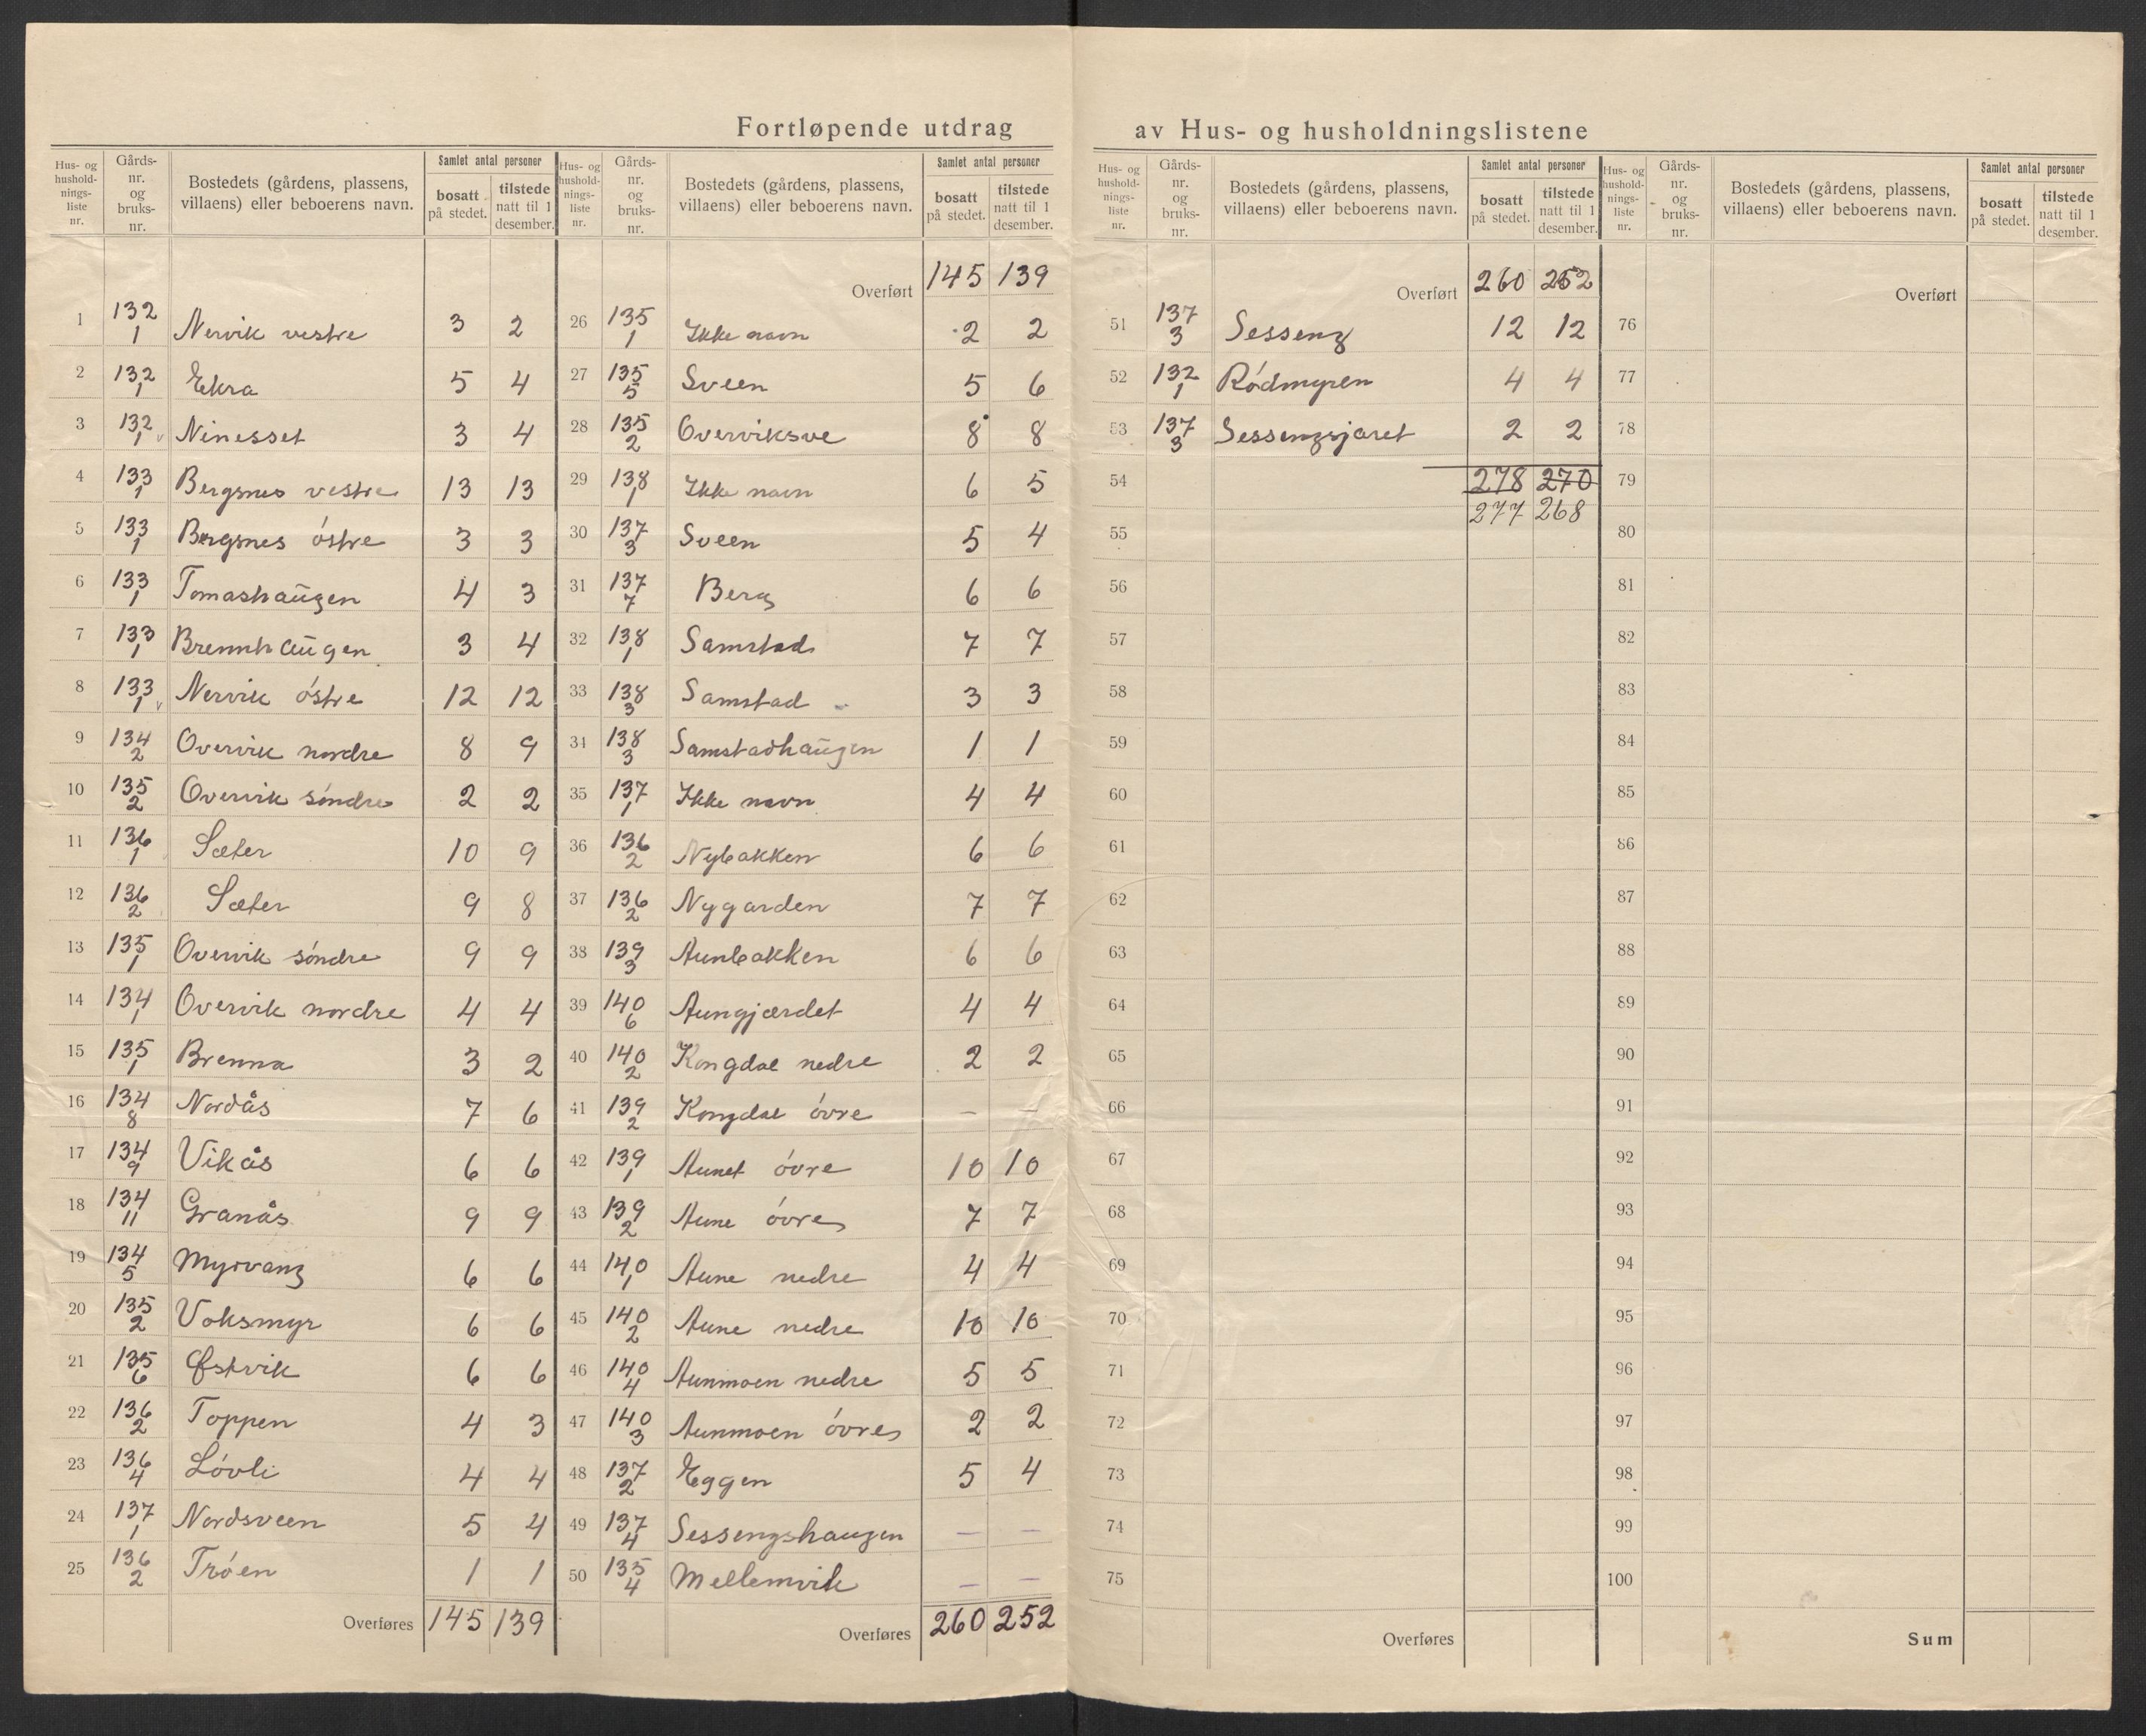 Fortløpende utdrag av Hus- og husholdningslistene
Hus- og hushold-nings-liste nr. | Gårds-nr. og bruks-nr. | Bostedets (gårdens, plassens, villaens) eller beboerens navn. | Samlet antal personer | bosatt på stedet. | tilstede natt til 1 desember.
1 132/1 Nervik vestre 3 2
2 132/1 Ekra 5 4
3 132/1 v Ninesset 3 4
4 133/1 Bergsnes vestre 13 13
5 133/1 Bergsnes östre 3 3
6 133/1 Tomashaugen 4 3
7 133/1 Brennhaugen 3 4
8 133/1 v Nervik östre 12 12
9 134/2 Overvik nordre 8 9
10 135/2 Overvik söndre 2 2
11 136/1 Sæter 10 9
12 136/2 Sæter 9 8
13 135/1 Overvik söndre 9 9
14 134/1 Overvik nordre 4 4
15 135/1 Brenna 3 2
16 134/8 Nordås 7 6
17 134/9 Vikås 6 6
18 134/11 Granås 9 9
19 134/5 Myrvang 6 6
20 135/2 Voksmyr 6 6
21 135/6 Østvik 6 6
22 136/2 Toppen 4 3
23 136/4 Lóvli 4 4
24 137/1 Nordsveen 5 4
25 136/2 Tróen 1 1
Overføres 145 139
Hus- og hushold-nings-liste nr. | Gårds-nr. og bruks-nr. | Bostedets (gårdens, plassens, villaens) eller beboerens navn. | Samlet antal personer | bosatt på stedet. | tilstede natt til 1 desember.
Overført 145 139
26 135/1 Ikke navn 2 2
27 135/5 Sveen 5 6
28 135/2 Overviksve 8 8
29 138/1 Ikke navn 6 5
30 137/3 Sveen 5 4
31 137/7 Berg 6 6
32 138/1 Samstad 7 7
33 138/3 Samstad 3 3
34 138/3 Samstadhaugen 1 1
35 137/1 Ikke navn 4 4
36 136/2 Nybakken 6 6
37 136/2 Nygarden 7 7
38 139/3 Aunbakken 6 6
39 140/6 Aungjærdet 4 4
40 140/2 Kongdal nedre 2 2
41 139/2 Kongdal óvre — —
42 139/1 Aunet óvre 10 10
43 139/2 Aune óvre 7 7
44 140/1 Aune nedre 4 4
45 140/2 Aune nedre 10 10
46 140/4 Aunmoen nedre 5 5
47 140/3 Aunmoen óvre 2 2
48 137/2 Eggen 5 4
49 137/4 Sessengshaugen — —
50 135/4 Mellemvik — —
Overføres 260 252
Hus- og hushold-nings-liste nr. | Gårds-nr. og bruks-nr. | Bostedets (gårdens, plassens, villaens) eller beboerens navn. | Samlet antal personer | bosatt på stedet. | tilstede natt til 1 desember.
Overført 260 252
51 137/3 Sesseng 12 12
52 132/1 Ródmyren 4 4
53 137/3 Sessengsjaret 2 2
54 278 270
277 268
55
56
57
58
59
60
61
62
63
64
65
66
67
68
69
70
71
72
73
74
75
Overføres
Hus- og hushold-nings-liste nr. | Gårds-nr. og bruks-nr. | Bostedets (gårdens, plassens, villaens) eller beboerens navn. | Samlet antal personer | bosatt på stedet. | tilstede natt til 1 desember.
Overført
76
77
78
79
80
81
82
83
84
85
86
87
88
89
90
91
92
93
94
95
96
97
98
99
100
Sum